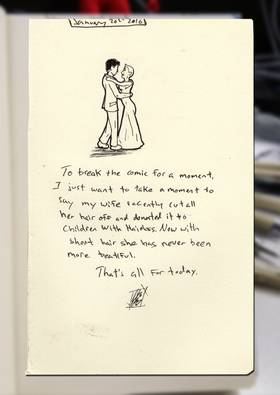 January 20th 2016
To break the comic for a moment,
I just want to take a moment to
say my wife recently cut all
her hair off and donated it to
Children With Hairloss. Now with
short hair she has never been
more beatiful.
That's all for today.